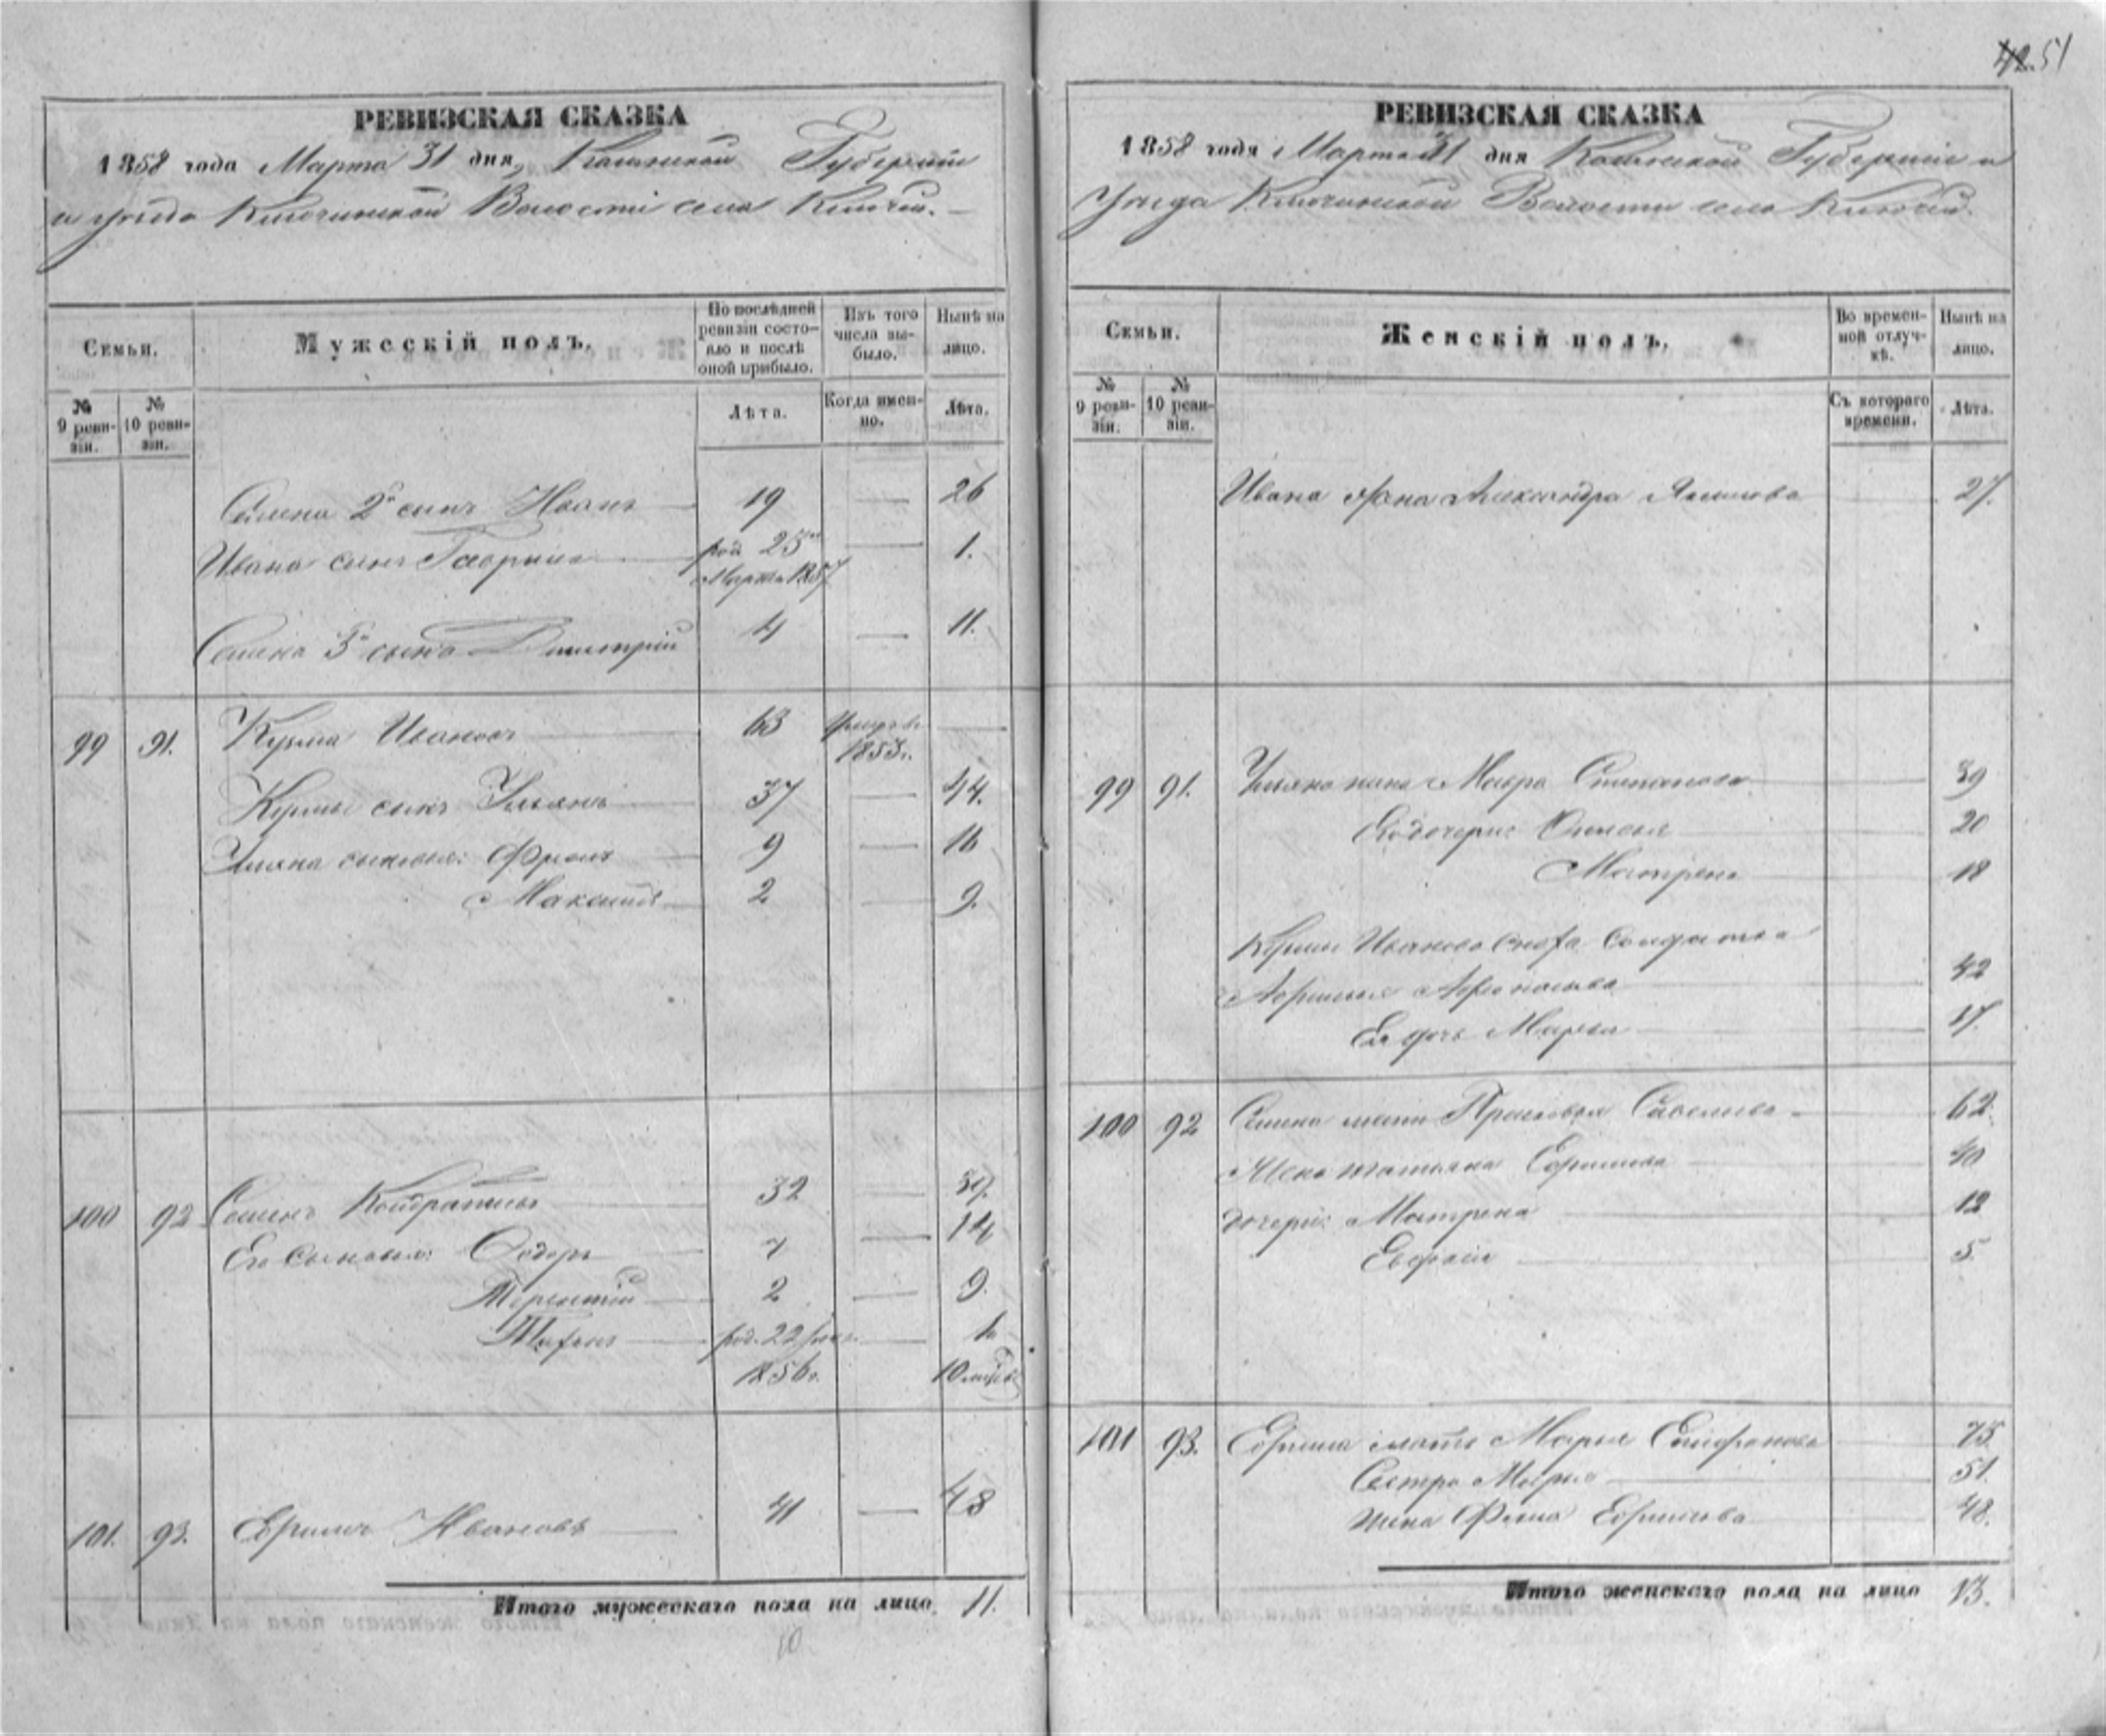 42 51
РЕВИЗСКАЯ СКАЗКА
1858 года Марта 31 дня, Губернии
и уезда Волости села Ключей.
Семьи.
Мужескій полъ.
По послѣдней ревизіи состояло и послѣ оной прибыло.
Изъ того числа выбыло.
Нынѣ на лицо.
№ 9 ревизіи.
№ 10 ревизіи.
Лѣта.
Когда именно.
Лѣта.
Семена 2й сынъ Иванъ 19 — 26
Ивана сынъ Гаврила род. 25го — 1.
Марта 1857
Семена 3й сынъ Димитрій 4 — 11.
99 91. Кузьма Ивановъ 63 умеръ въ —
1853г.
Кузьмы сынъ Ульянъ 37 — 44.
Ульяна сыновья: 9 — 16
Максимъ 2 — 9.
100 92 Семенъ Кондратьевъ 32 — 39.
Его сыновья: Федоръ 7 — 14
Терентій 2 — 9.
род. 22 — 1
1856г. 10 мѣсяц
101. 93. Ефимъ Ивановъ 41 — 48
Итого мужескаго пола на лицо 11.
10
РЕВИЗСКАЯ СКАЗКА
1858 года Марта 31 дня Губерніи и
Уезда Волости села Ключей.
Семьи.
Женскій полъ.
Во временной отлучкѣ.
Нынѣ на лицо.
№ 9 ревизіи.
№ 10 ревизіи.
Съ котораго времени.
Лѣта.
Ивана жена Александра 27.
99 91. Ульяна жена Мавра Степанова 39
Его дочери: 20
Матрена 18
Кузьмы Иванова сноха солдатка
Афанасьева 42
Ея дочь Марья 17.
100 92 Семена мати Прасковья Савельева 62.
Жена Татьяна Ефимова 40
дочери: Матрена 12
5.
101 93. Ефима мать Марья Епифанова 75
Сестра Мавра 51.
жена Ефимова 48.
Итого женскаго пола на лицо 13.